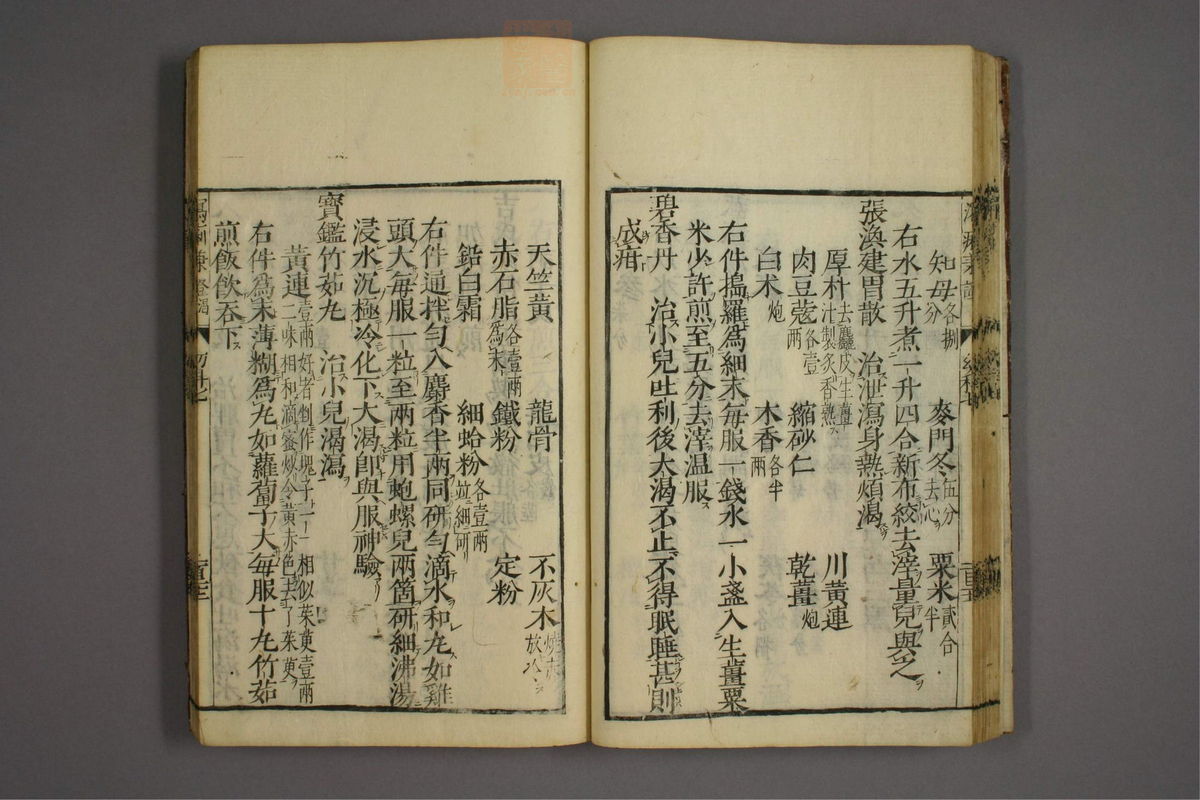 知母各捌分 麥門冬伍分去心 粟米貳合半
右水五升煮一升四合新布絞去滓量兒與之
張渙建胃散 治泄瀉身熱煩渴
厚朴去麤皮生薑汁製炙香熟 川黃連
肉豆蔻各壹兩 縮砂仁 乾薑炮
白朮炮 木香各半兩
右件搗羅爲細末每服一錢水一小盞入生薑粟
米少許煎至五分去滓温服
碧香丹 治小兒吐利後大渴不止不得眠睡甚則
成疳
天竺黃 龍骨 不灰木燒赤放冷
赤石脂各壹兩爲末 鐵粉 定粉
鉛白霜 細蛤粉各壹兩並細研
右件通拌勻入麝香半兩同研勻滴水和丸如雞
頭大每服一粒至兩粒用蚫螺兒兩箇研細沸湯
浸水沉極冷化下大渴卽與服神驗
寶鑑竹茹丸 治小兒渴瀉
黃連壹兩好者剉作塊子一一相似茱萸壹兩二味相和滴蜜炒令黃赤色去了茱萸
右件爲末薄糊爲丸如蘿蔔子大每服十丸竹茹
煎飯飲吞下